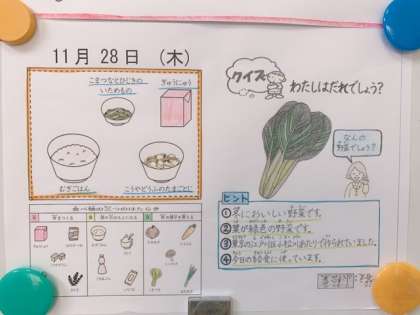 11月 28日 (木)
こまつなとひじきの
いためもの
ぎゅうにゅう
むぎごはん
こうやどうふのたまごとじ
食べ物の3つのはたらき
クイズ
わたしはだれでしょう?
なんの
野菜でしょう?
ヒント
①冬においしい野菜です。
②葉が緑色の野菜です。
③東京の江戸川区小松川あたりで作られていました。
④今日の給食に使っています。